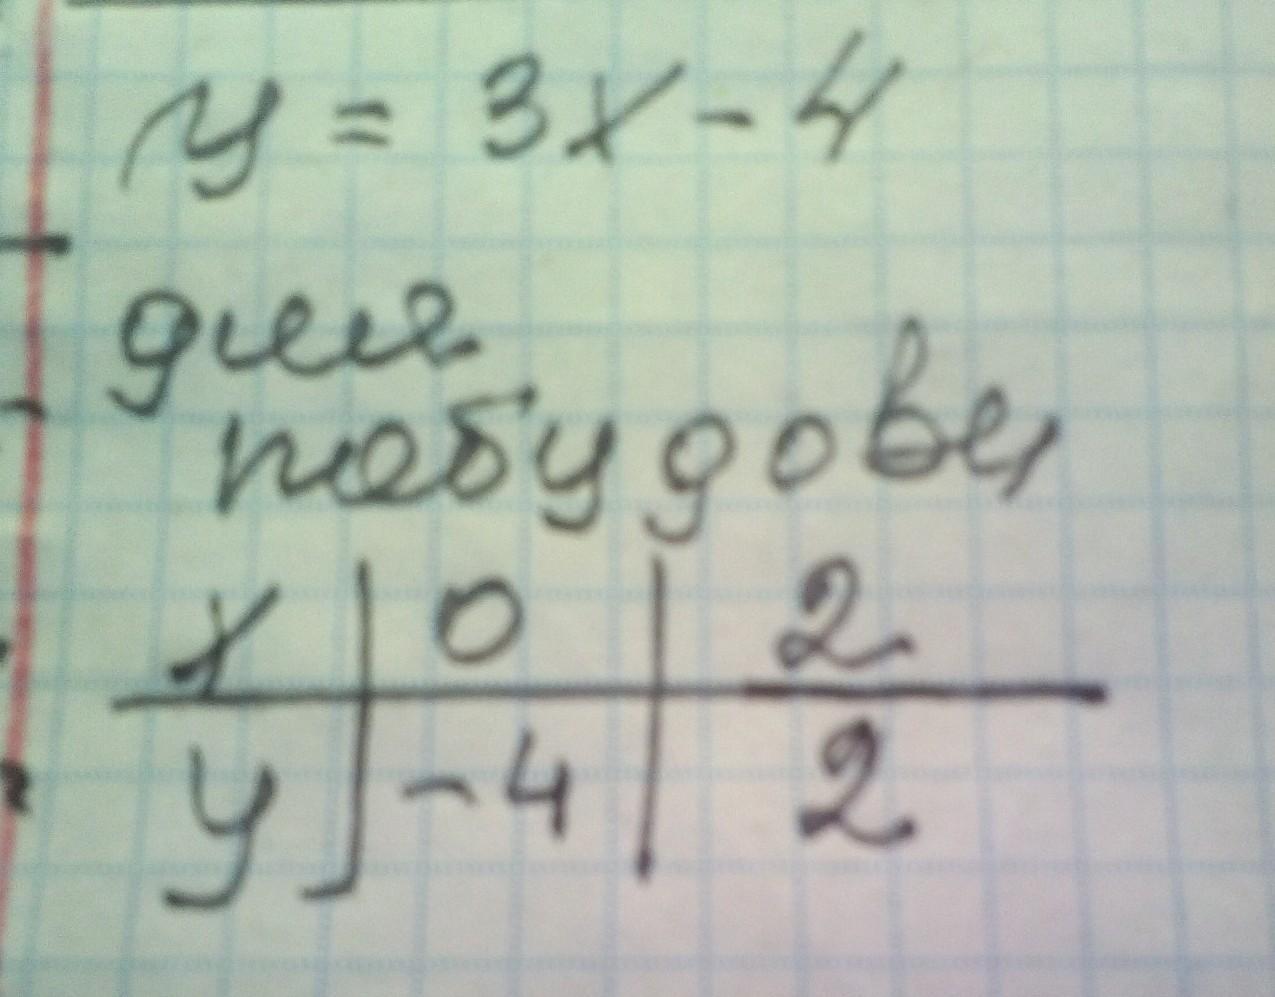 y = 3x - 4
для
побудови
x | 0 | 2
y | -4 | 2